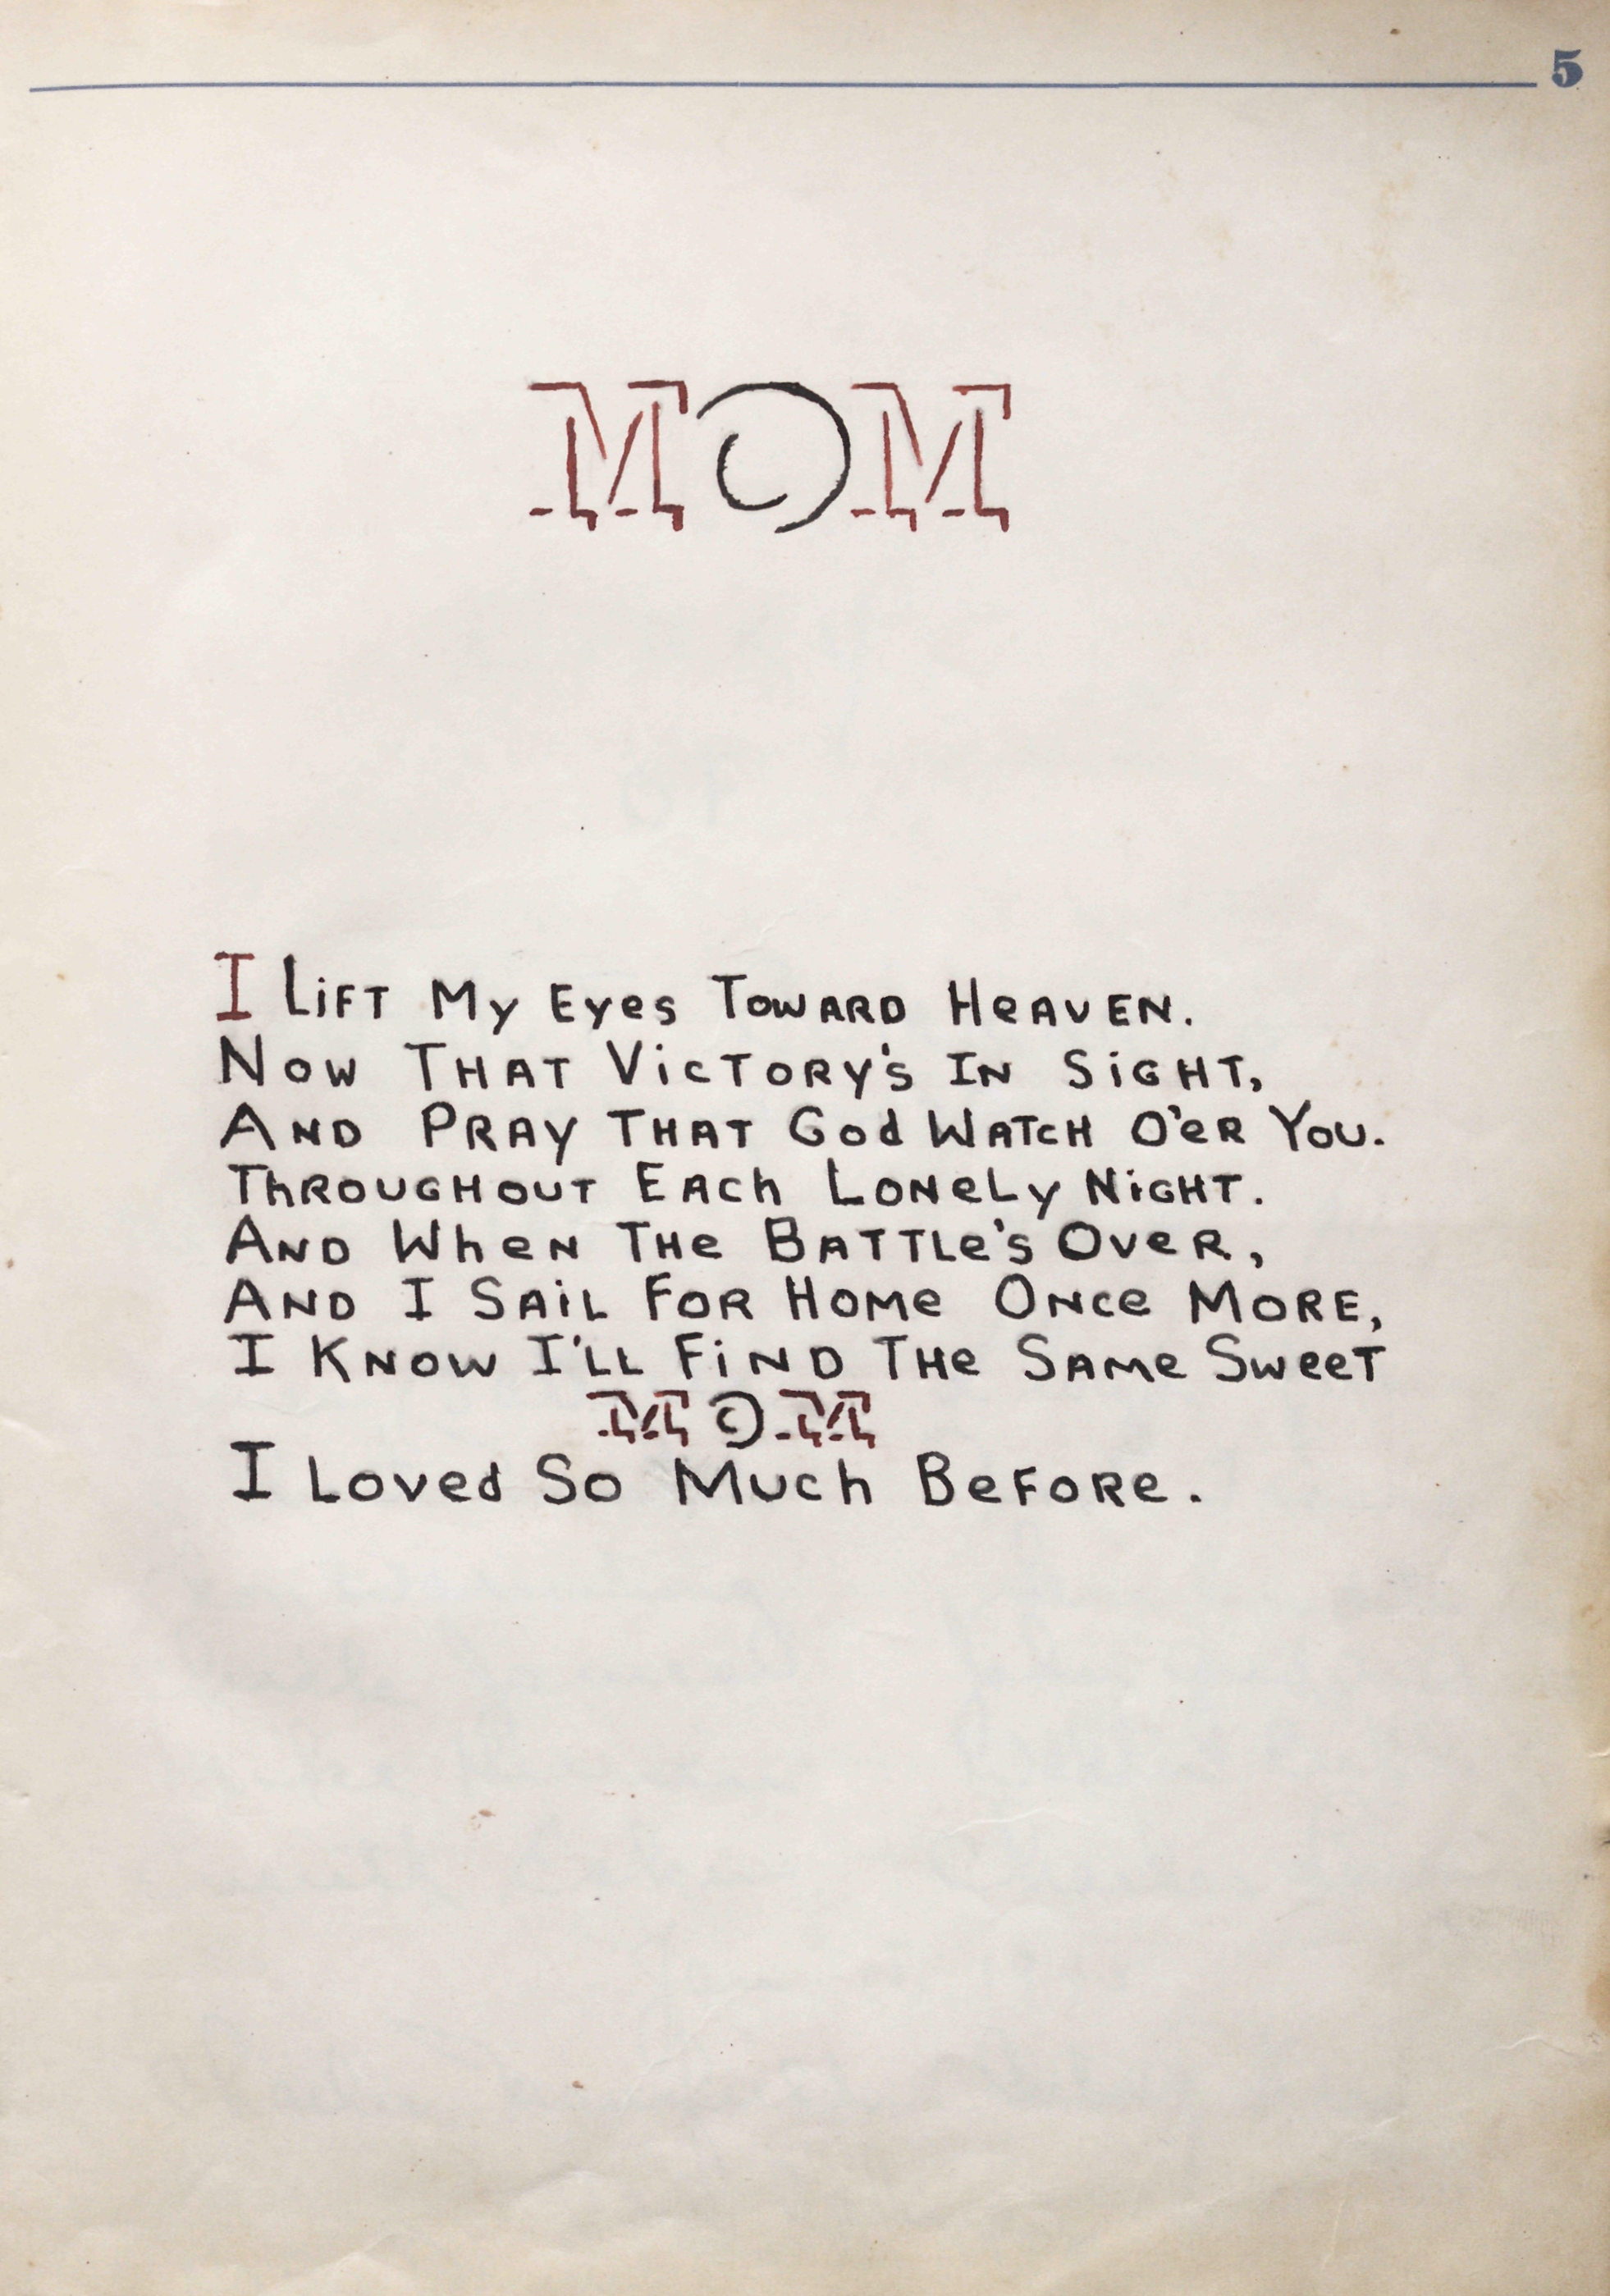 5
MOM
I Lift My Eyes Toward Heaven.
Now That Victory's In Sight,
And Pray That God Watch O'er You.
Throughout Each Lonely Night.
And When The Battle's Over,
And I Sail For Home Once More,
I Know I'll Find The Same Sweet
MOM
I Loved So Much Before.